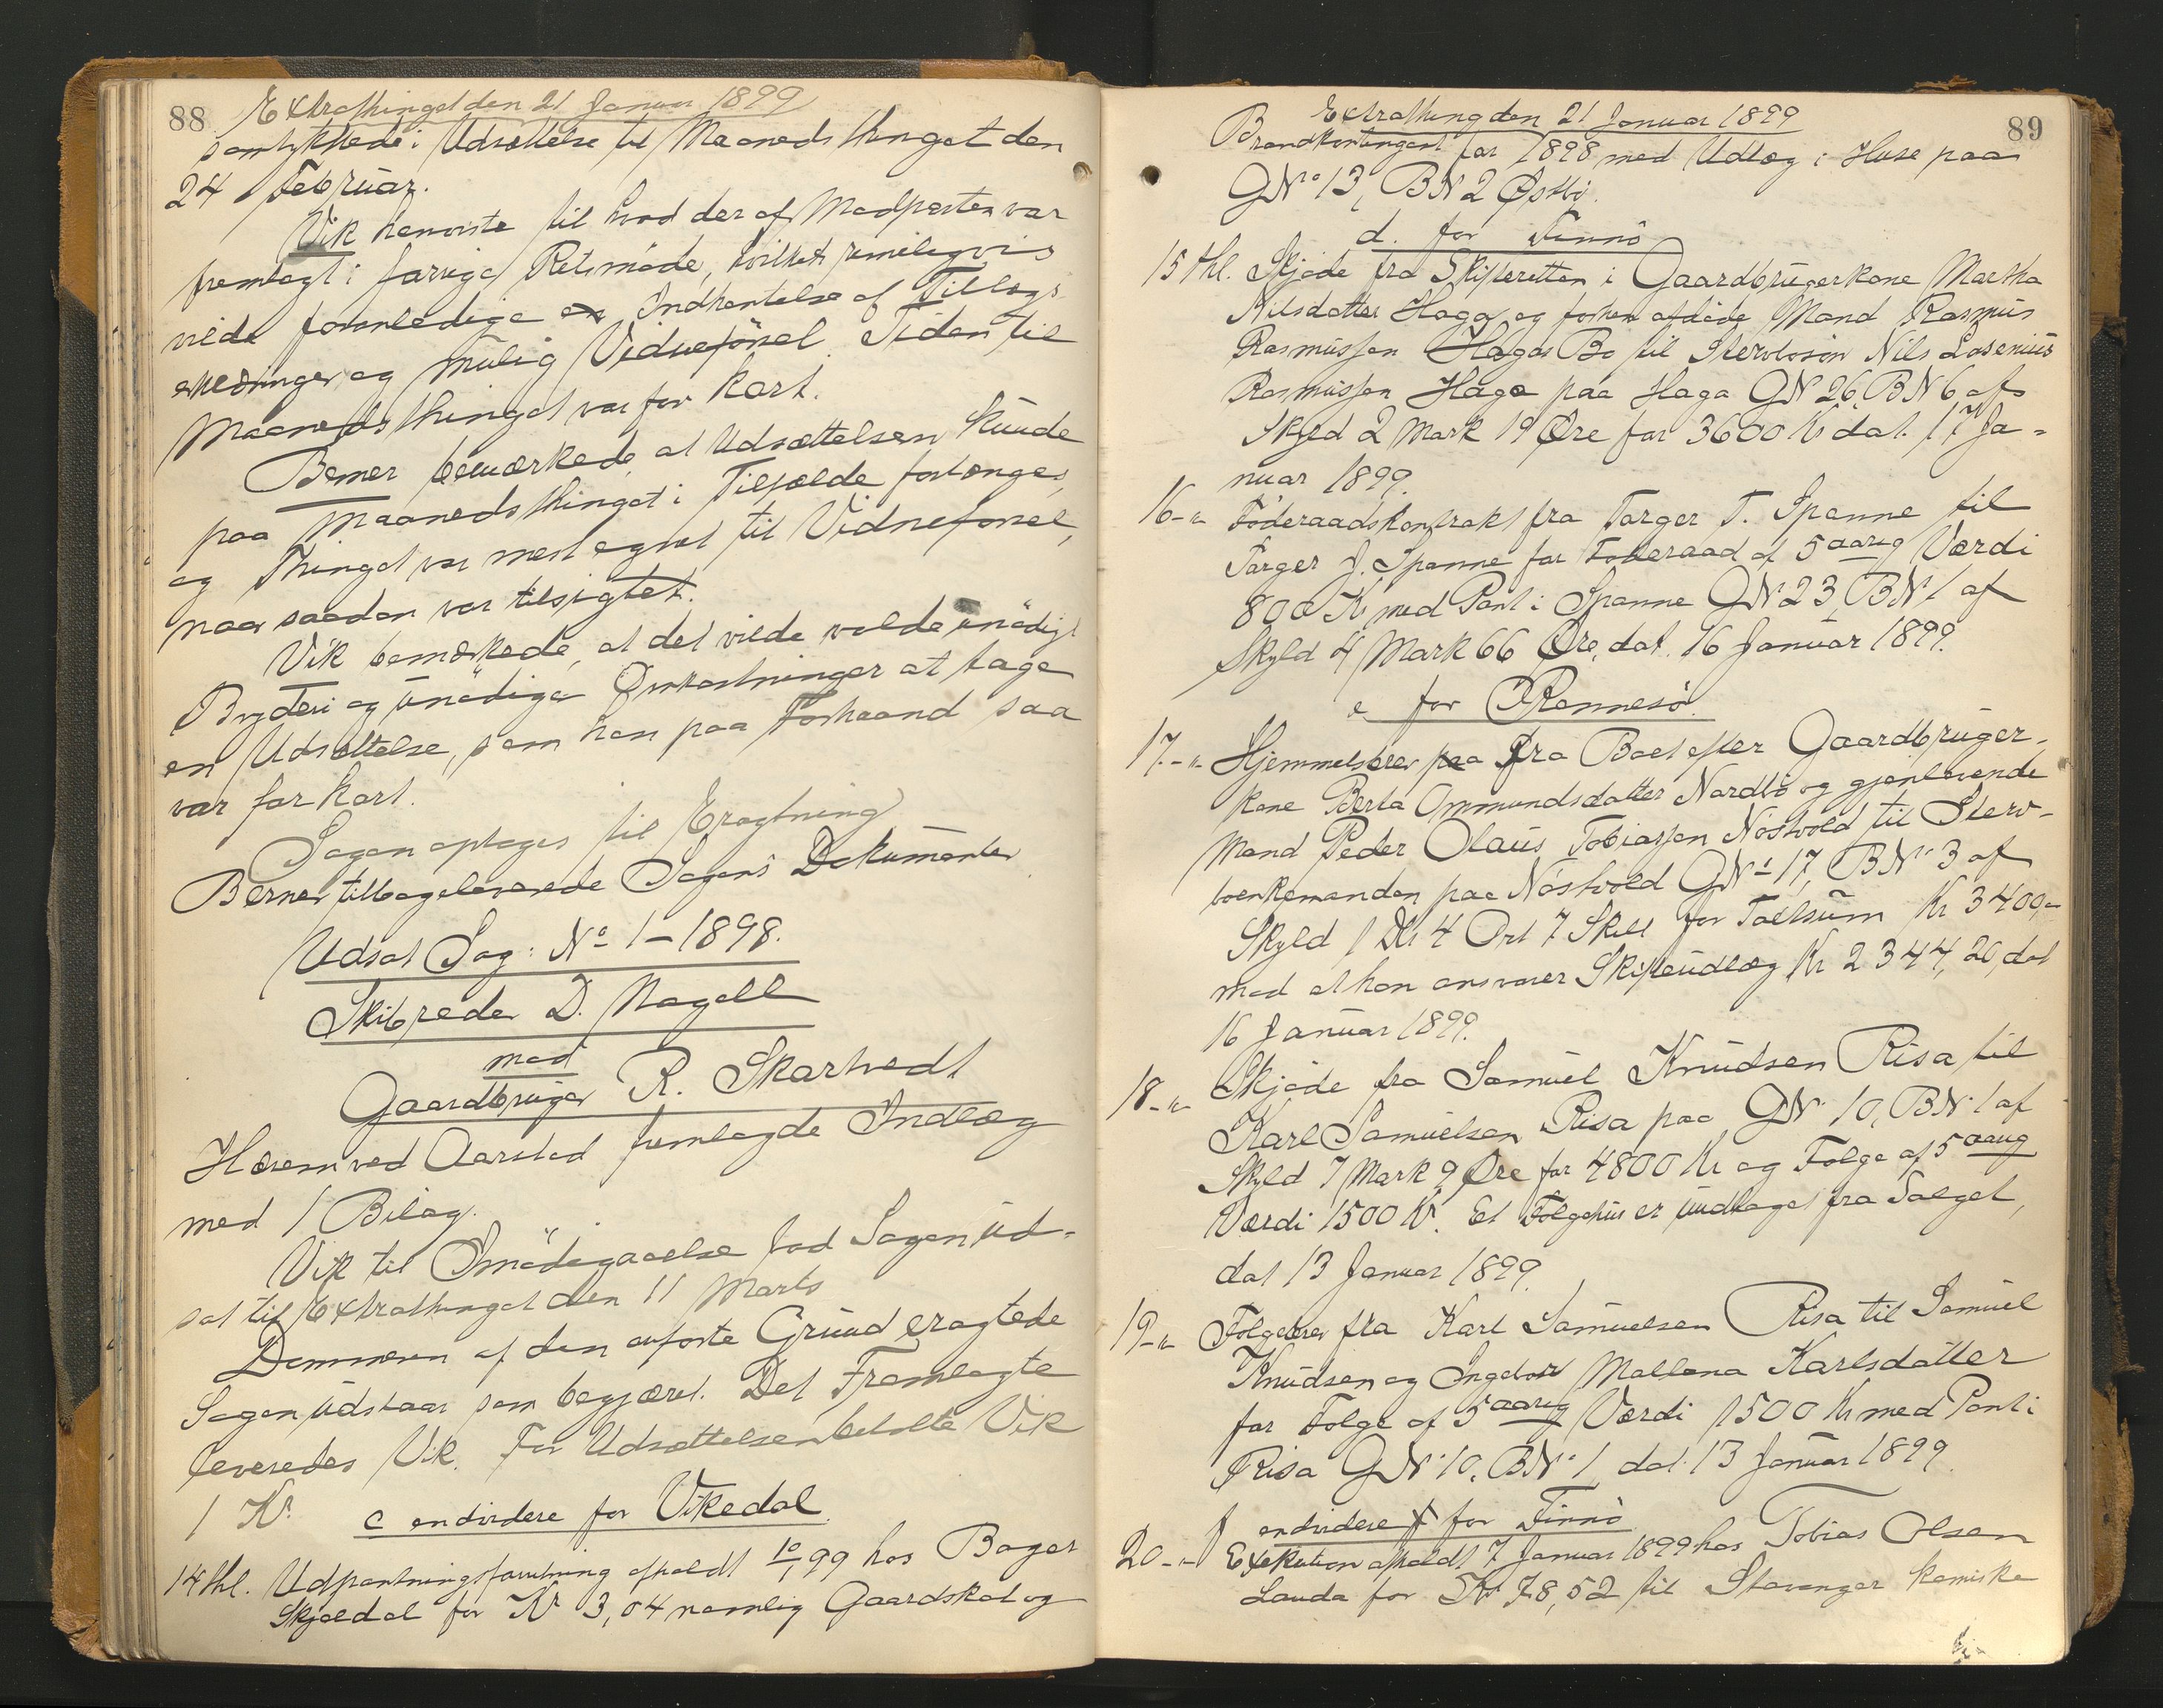 88 Extrathinget den 21 Januar 1899
samtykkede i Udsættelse til Maanedsthinget den
24 Februar.
Vik henviste til hvad der af Modparten var
fremlagt i forrige Retsmøde, hvilket rimeligvis
vilde foranledige en Indhentelse af Tillægs
erklæringer og mulig Vidneførsel. Tiden til
Maanedsthinget var for kort.
Berner bemærkede, at Udsættelsen kunde
paa Maanedsthinget i Tilfælde forlænges,
og Thinget var mest egnet til Vidneførsel,
naar saadan var tilsigtet.
Vik bemærkede, at det vilde volde unødigt
Bryderi og unødige Omkostninger at tage
en Udsættelse, som han paa Forhaand saa
var for kort.
Sagen optages til Eragtning
Berner tilbageleverede Sagens Dokumenter
Udsat Sag: No 1-1898.
Skibsreder D. Nagell
mod
Gaardbruger R. Skartvedt
Hærem ved Aarstad fremlagde Indlæg
med 1 Bilag.
Vik til Imødegaaelse bad Sagen ud-
sat til Extrathinget den 11 Marts
Dommeren af den anførte Grund eragtede
Sagen udstaar som begjæret. Det Fremlagte
leveredes Vik. For Udsættelsen betalte Vik
1 Kr.
c endvidere for Vikedal
14 thl. Udpantningsforretning afholdt 10/1 99 hos Bager
Skjeldal for Kr 3,04 nemlig Gaardskat og
Extrathing den 21 Januar 1899
89
Brandkontingent for 1898 med Udlæg i Huse paa
GNo 13, BN 2 Østbø.
d. for Finnø
15 thl. Skjøde fra Skifteretten i Gaardbrugerkone Martha
Nilsdatter Haga og forhen afdøde Mand Rasmus
Rasmussen Hagas Bo til Stervbosøn Nils Lasenius
Rasmussen Haga paa Haga GN 26, BN 6 af
Skyld 2 Mark 19 Øre for 3600 Kr dat. 17 Ja-
nuar 1899.
16 - " Føderaadskontrakt fra Torger T. Spanne til
Torger J. Spanne for Føderaad af 5 aarig Værdi
800 Kr med Pant i Spanne GN 23, BN 1 af
Skyld 4 Mark 66 Øre, dat. 16 Januar 1899.
e for Rennesø.
17. - " Hjemmelsbrev paa fra Boet efter Gaardbruger-
kone Berta Ommundsdatter Nordbø og gjenlevende
Mand Peder Olaus Tobiassen Nøstvold til Sterv-
boenkemanden paa Nøstvold GNo 17, BNo 3 af
Skyld 1 Dlr 4 Ort 7 Skill for Talsum Kr 3400,-
mod at han ansvarer Skifteudlæg Kr 2344,20, dat
16 Januar 1899.
18 - " Skjøde fra Samuel Knudsen Risa til
Karl Samuelsen Risa paa GN 10, BN 1 af
Skyld 7 Mark 9 Øre for 4800 Kr og Følge af 5 aarig
Værdi 1500 Kr. Et Følgehus er undtaget fra Salget,
dat 13 Januar 1899.
19 - " Følgebrev fra Karl Samuelsen Risa til Samuel
Knudsen og Ingebor Mallena Karlsdatter
for Følge af 5 aarig Værdi 1500 Kr med Pant i
Risa GN 10, BN 1, dat 13 Januar 1899.
f endvidere for Finnø
20 - " Exekution afholdt 7 Januar 1899 hos Tobias Olsen
Lauda for Kr 78,52 til Stavanger kemiske